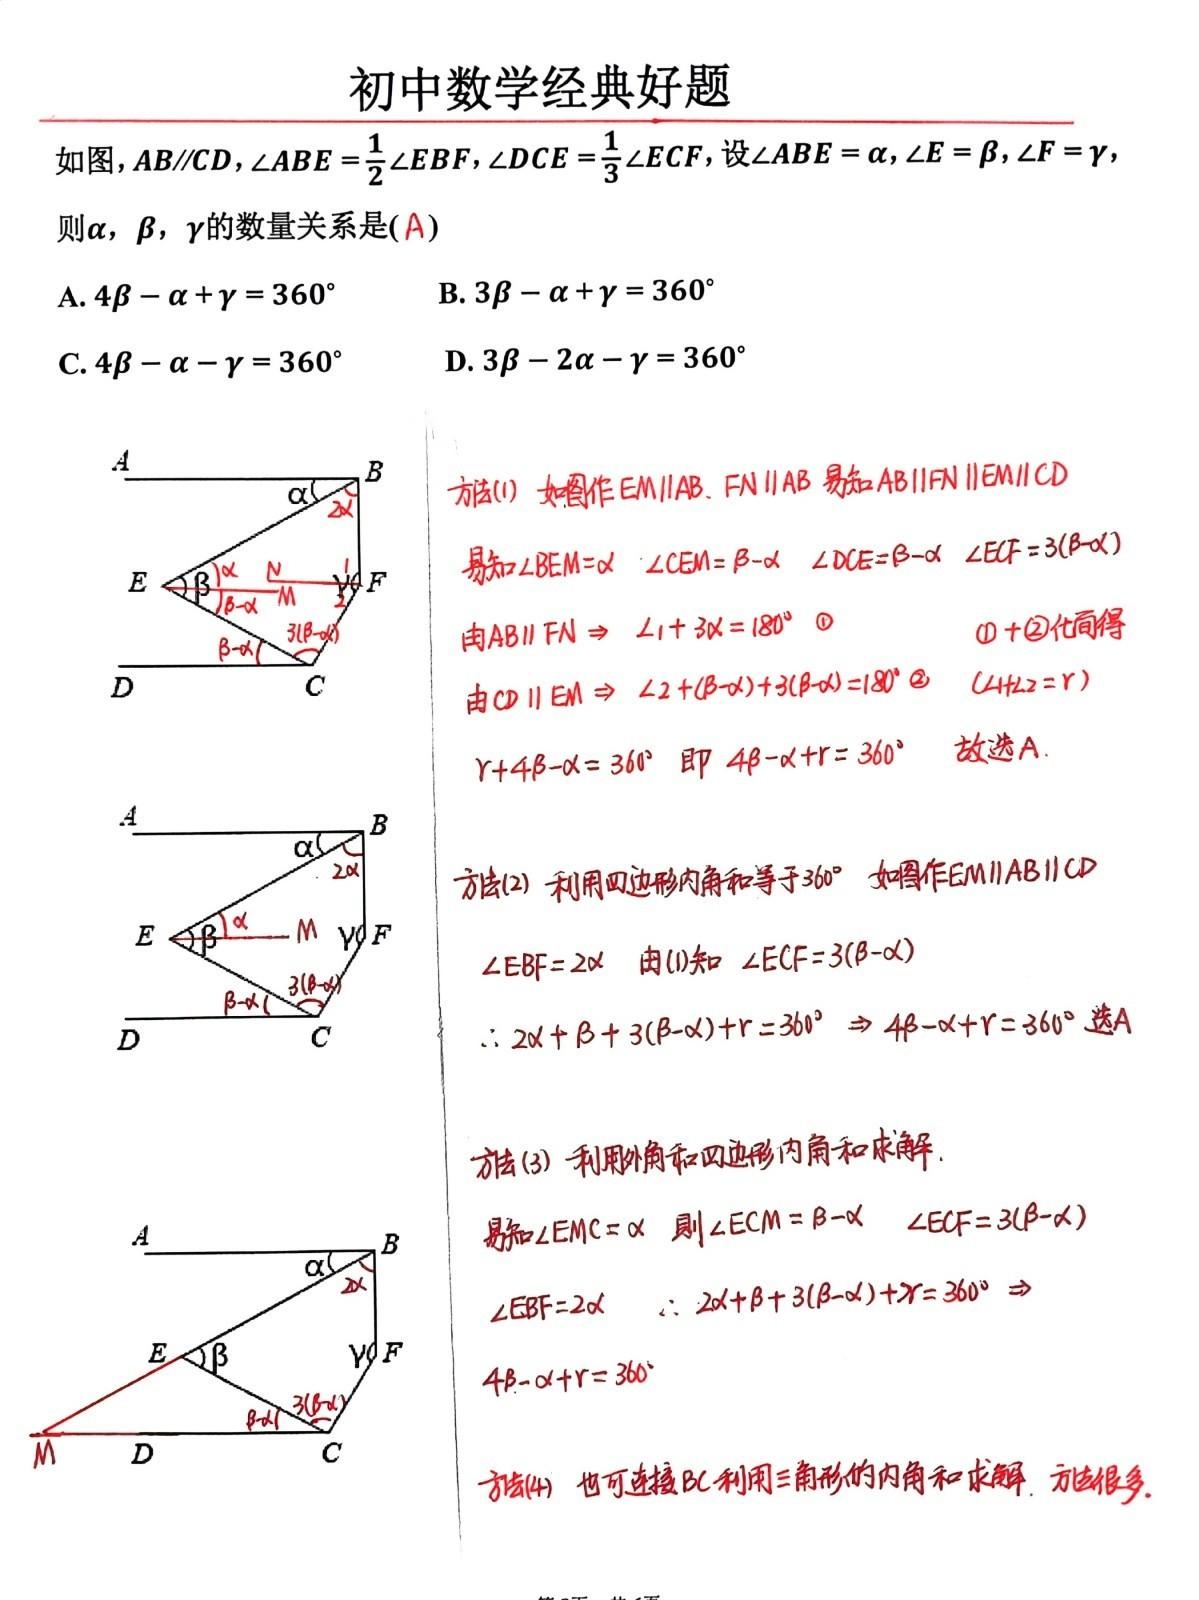 初中数学经典好题
如图, AB//CD, ∠ABE = 1/2∠EBF, ∠DCE = 1/3∠ECF, 设∠ABE = α, ∠E = β, ∠F = γ,
则α，β，γ的数量关系是( A )
A. 4β − α + γ = 360°    B. 3β − α + γ = 360°
C. 4β − α − γ = 360°    D. 3β − 2α − γ = 360°
A B α 2α
E β α N M β-α 1 γ 2 F
β-α 3(β-α)
D C
方法(1) 如图作EM∥AB、FN∥AB 易知AB∥FN∥EM∥CD
易知∠BEM=α ∠CEM=β-α ∠DCE=β-α ∠ECF=3(β-α)
由AB∥FN ⇒ ∠1+3α=180° ① ①+②化简得
由CD∥EM ⇒ ∠2+(β-α)+3(β-α)=180° ② (∠1+∠2=r)
r+4β-α=360° 即 4β-α+r=360° 故选A.
A B α 2α
E β α M γ F
β-α 3(β-α)
D C
方法(2) 利用四边形内角和等于360° 如图作EM∥AB∥CD
∠EBF=2α 由(1)知 ∠ECF=3(β-α)
∴ 2α+β+3(β-α)+r=360° ⇒ 4β-α+r=360° 选A
A B α 2α
E β γ F
β-α 3(β-α)
M D C
方法(3) 利用外角和四边形内角和求解.
易知∠EMC=α 则∠ECM=β-α ∠ECF=3(β-α)
∠EBF=2α ∴ 2α+β+3(β-α)+r=360° ⇒
4β-α+r=360°
方法(4) 也可连接BC利用三角形的内角和求解. 方法很多.